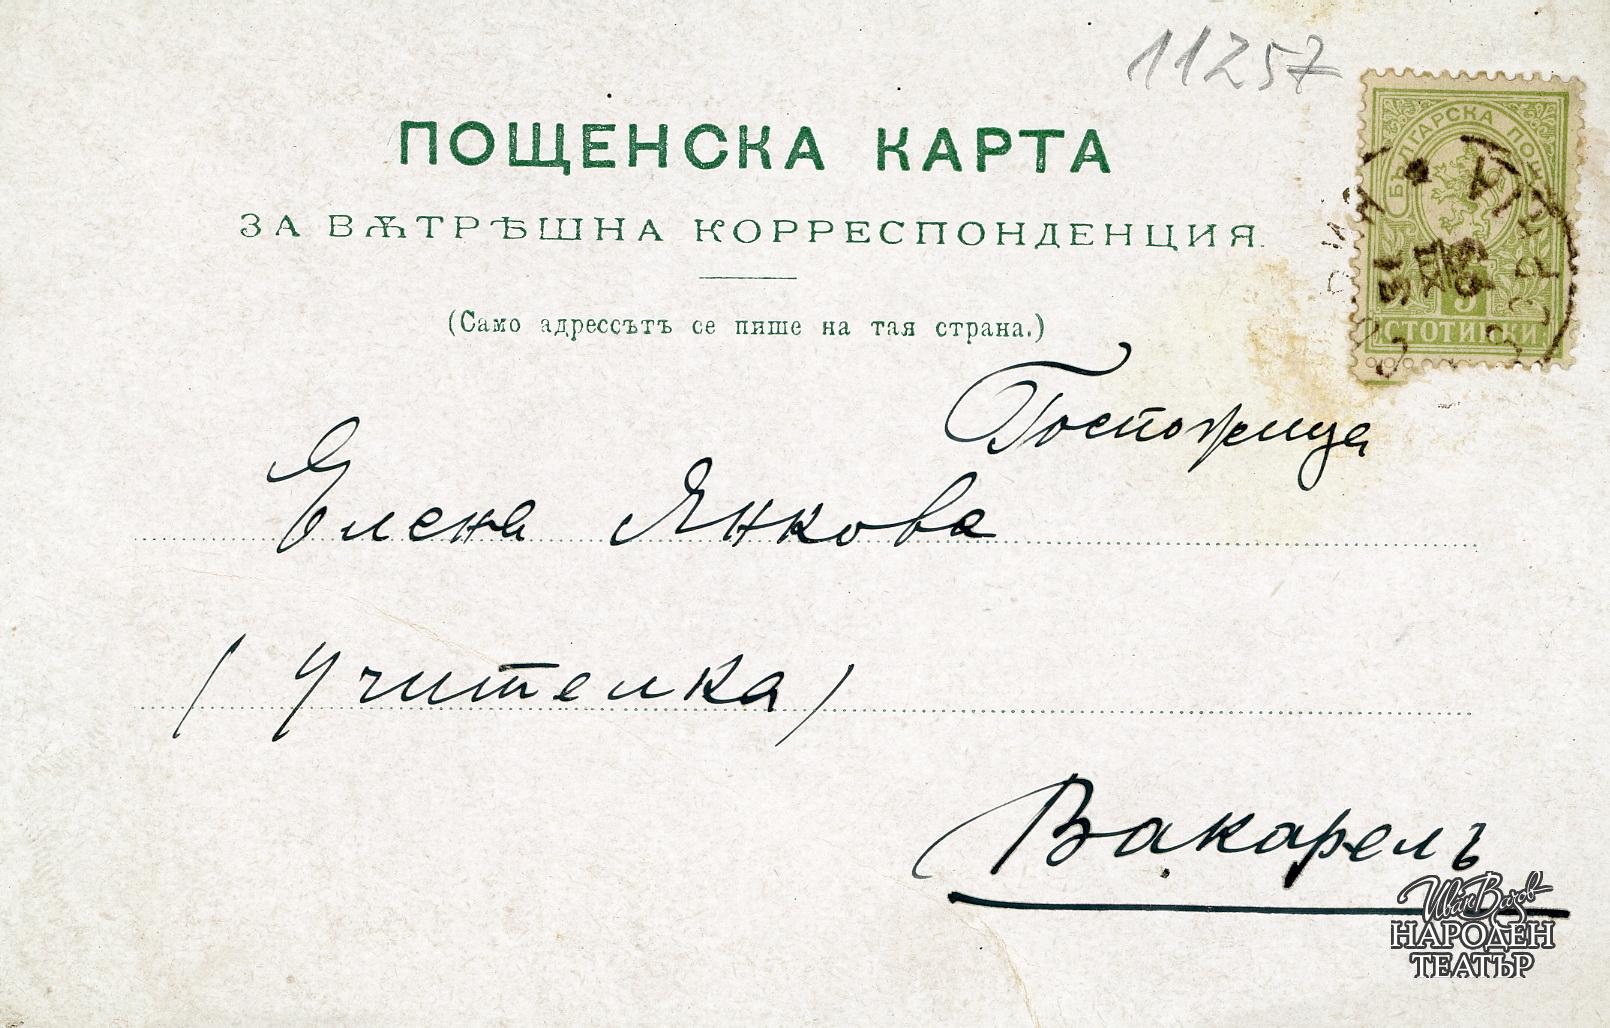 11257
ПОЩЕНСКА КАРТА
ЗА ВѪТРѢШНА КОРРЕСПОНДЕНЦИЯ.
(Само адрессътъ се пише на тая страна.)
БЪЛГАРСКА ПОЩА
5
СТОТИНКИ
Госпожица
Елена Янкова
(Учителка)
Вакарелъ
Иван Вазов
НАРОДЕН
ТЕАТЪР